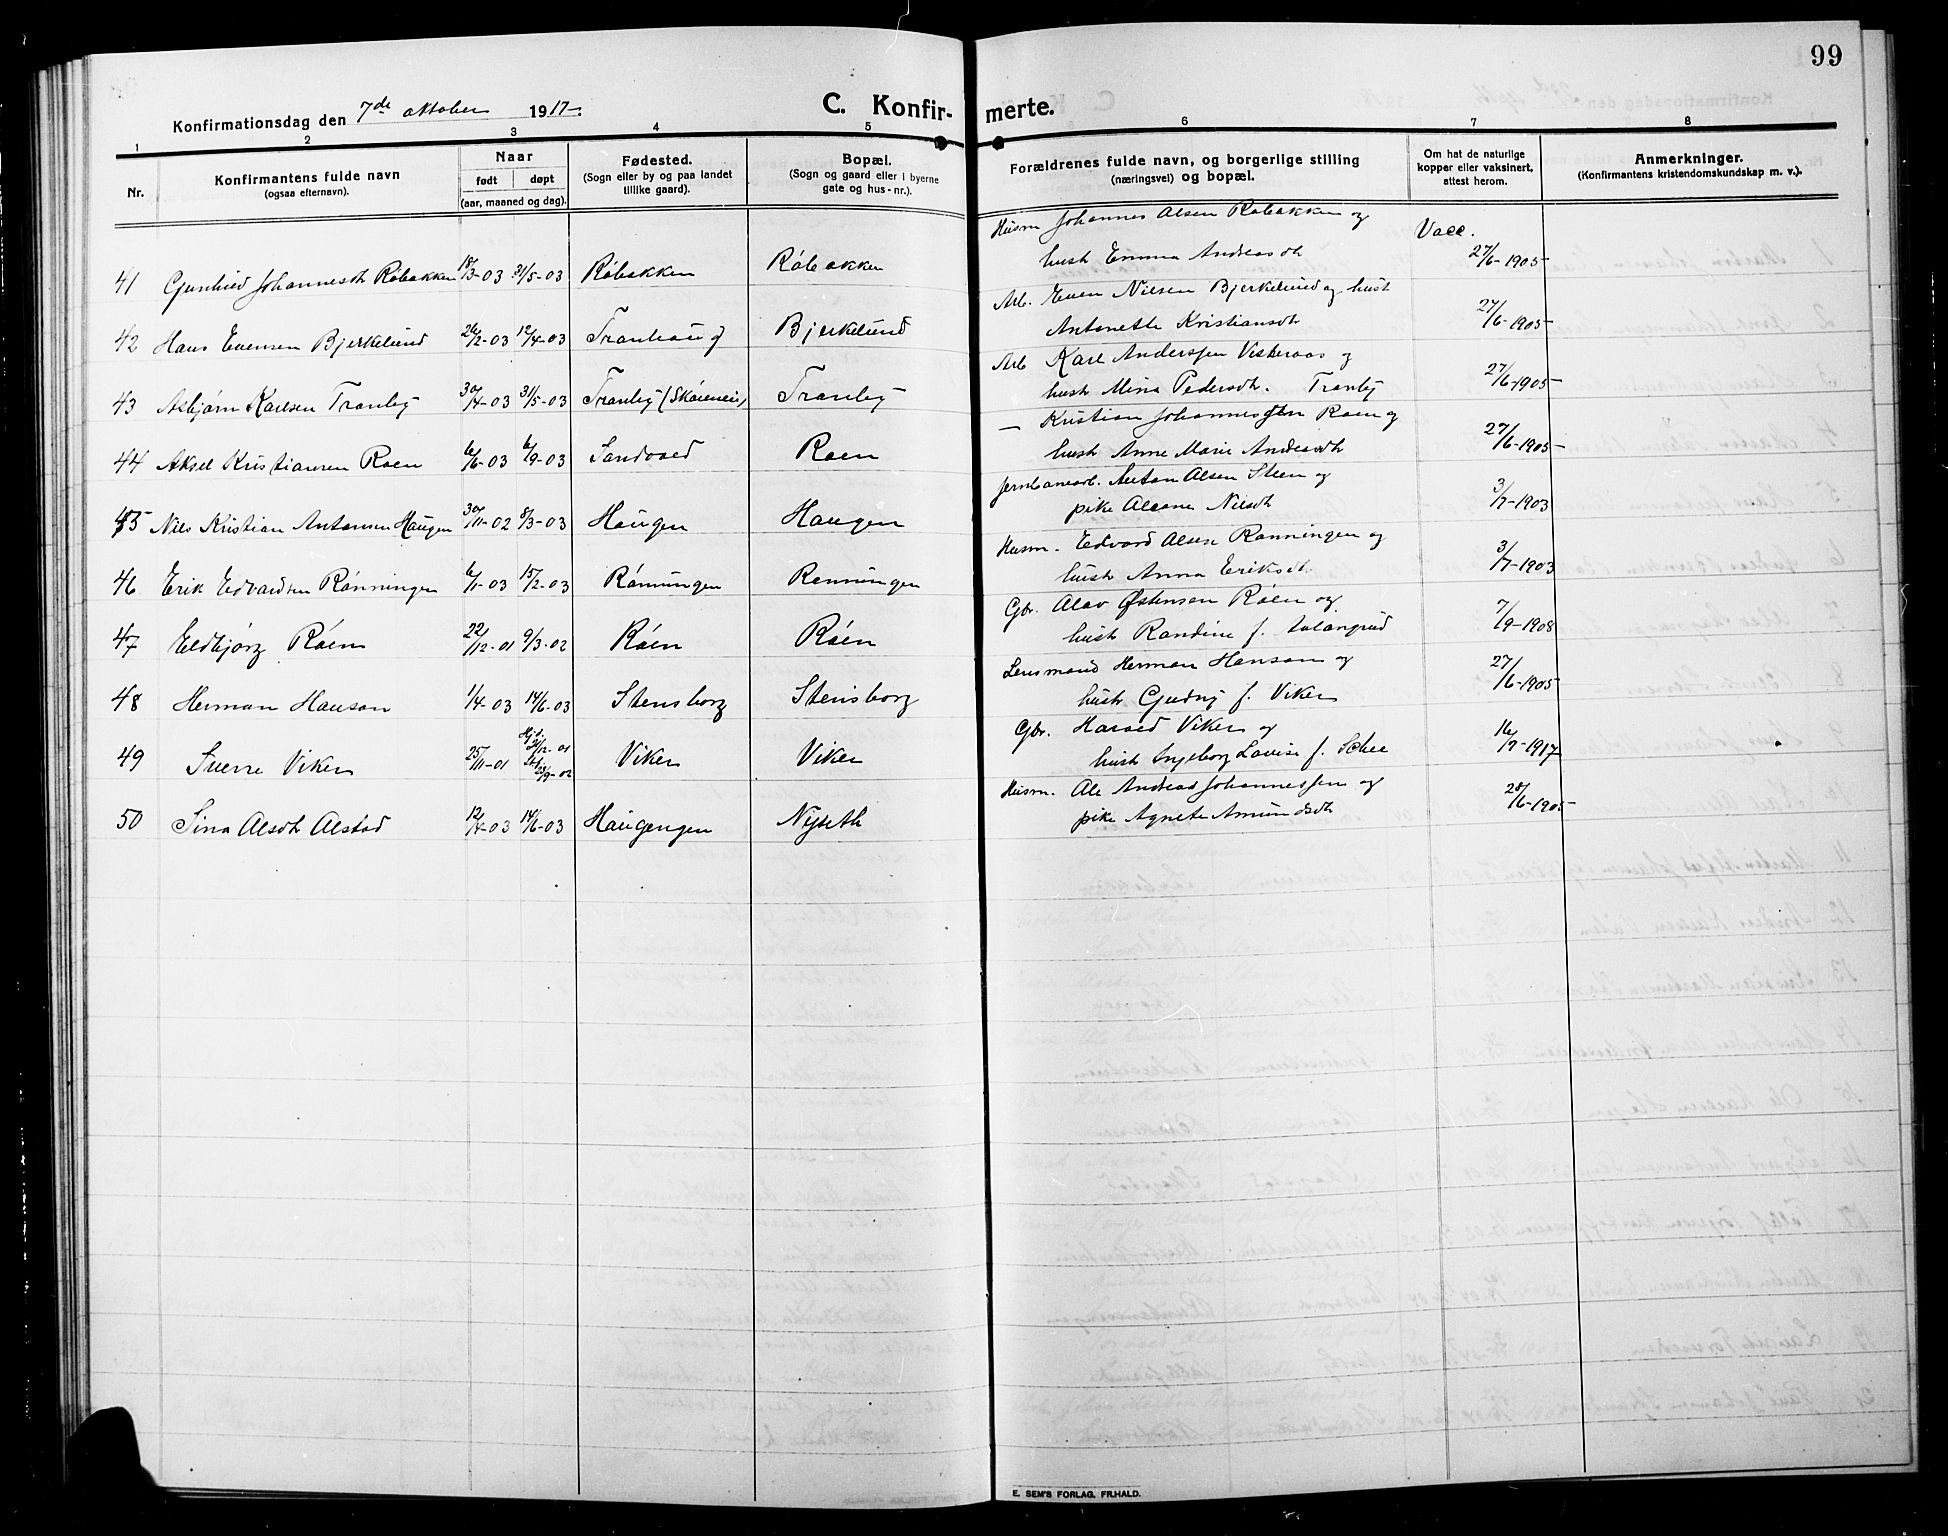 99
Konfirmationsdag den 7de oktober 1917.
C. Konfir- merte.
1 2 3 4 5 6 7 8
Nr.
Konfirmantens fulde navn
(ogsaa efternavn).
Naar
født døpt
(aar, maaned og dag).
Fødested.
(Sogn eller by og paa landet
tillike gaard).
Bopæl.
(Sogn og gaard eller i byerne
gate og hus-nr.).
Forældrenes fulde navn, og borgerlige stilling
(næringsvei) og bopæl.
Om hat de naturlige
kopper eller vaksinert,
attest herom.
Anmerkninger.
(Konfirmantens kristendomskundskap m. v.).
Husm Johannes Olsen Røbakken og Vacc.
41 Gunhild Johannesdt Røbakken 18/3-03 31/5-03 Røbakken Røbakken hustr Emma Andreasdt 27/6-1905
Arb. Even Nilsen Bjerkelund og hust
42 Hans Evensen Bjerkelund 26/2-03 12/4-03 Tranhaug Bjerkelund Antonette Kristiansdt 27/6-1905
Arb Karl Anderssen Veskeraas og
43 Asbjørn Karlsen Tranby 30/4-03 31/5-03 Tranby Tranby hustr Mina Pedersdt. Tranby 27/6-1905
— Kristian Johannessen Roen og
44 Aksel Kristiansen Roen 6/6-03 6/9-03 Sandvold Roen hustr Anne Marie Andreasdt 27/6-1905
Jernbanearb. Anton Olsen Steen og
45 Nils Kristian Antonsen Haugen 30/11-02 8/3-03 Haugen Haugen pike Oleane Nilsdt 3/7-1903
Husm. Edvard Olsen Rønningen og
46 Erik Edvardsen Rønningen 6/1-03 15/2-03 Rønningen Rønningen hustr Anna Eriksdt. 3/7-1903
Gbr. Olav Østensen Røen og
47 Eldbjørg Røen 22/12-01 9/3-02 Røen Røen hustr Randine f. 7/9-1908
Lensmand Herman Hanson og
48 Herman Hanson 1/4-03 14/6-03 Stensborg Stensborg hustr Gudny f. Viker 27/6-1905
Gbr. Harald Viker og
49 Sverre Viker 25/11-01 Hjd. 21/12-01 Viker Viker hustr Ingeborg Lovise f. Schee 16/9-1917
Husm. Ole Andreas Johannessen og
50 Sina Olsdt Alstad 12/4-03 14/6-03 Haugengen Nyseth pike Agnete Amundsdt 28/6-1905
E. SEM'S FORLAG, FR.HALD.